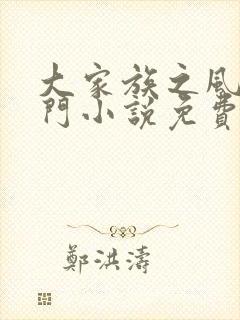 大家族之風
門小說免費
鄭洪濤